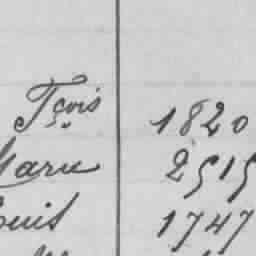 Fçois 1820
Marie 2515
Louis 1747